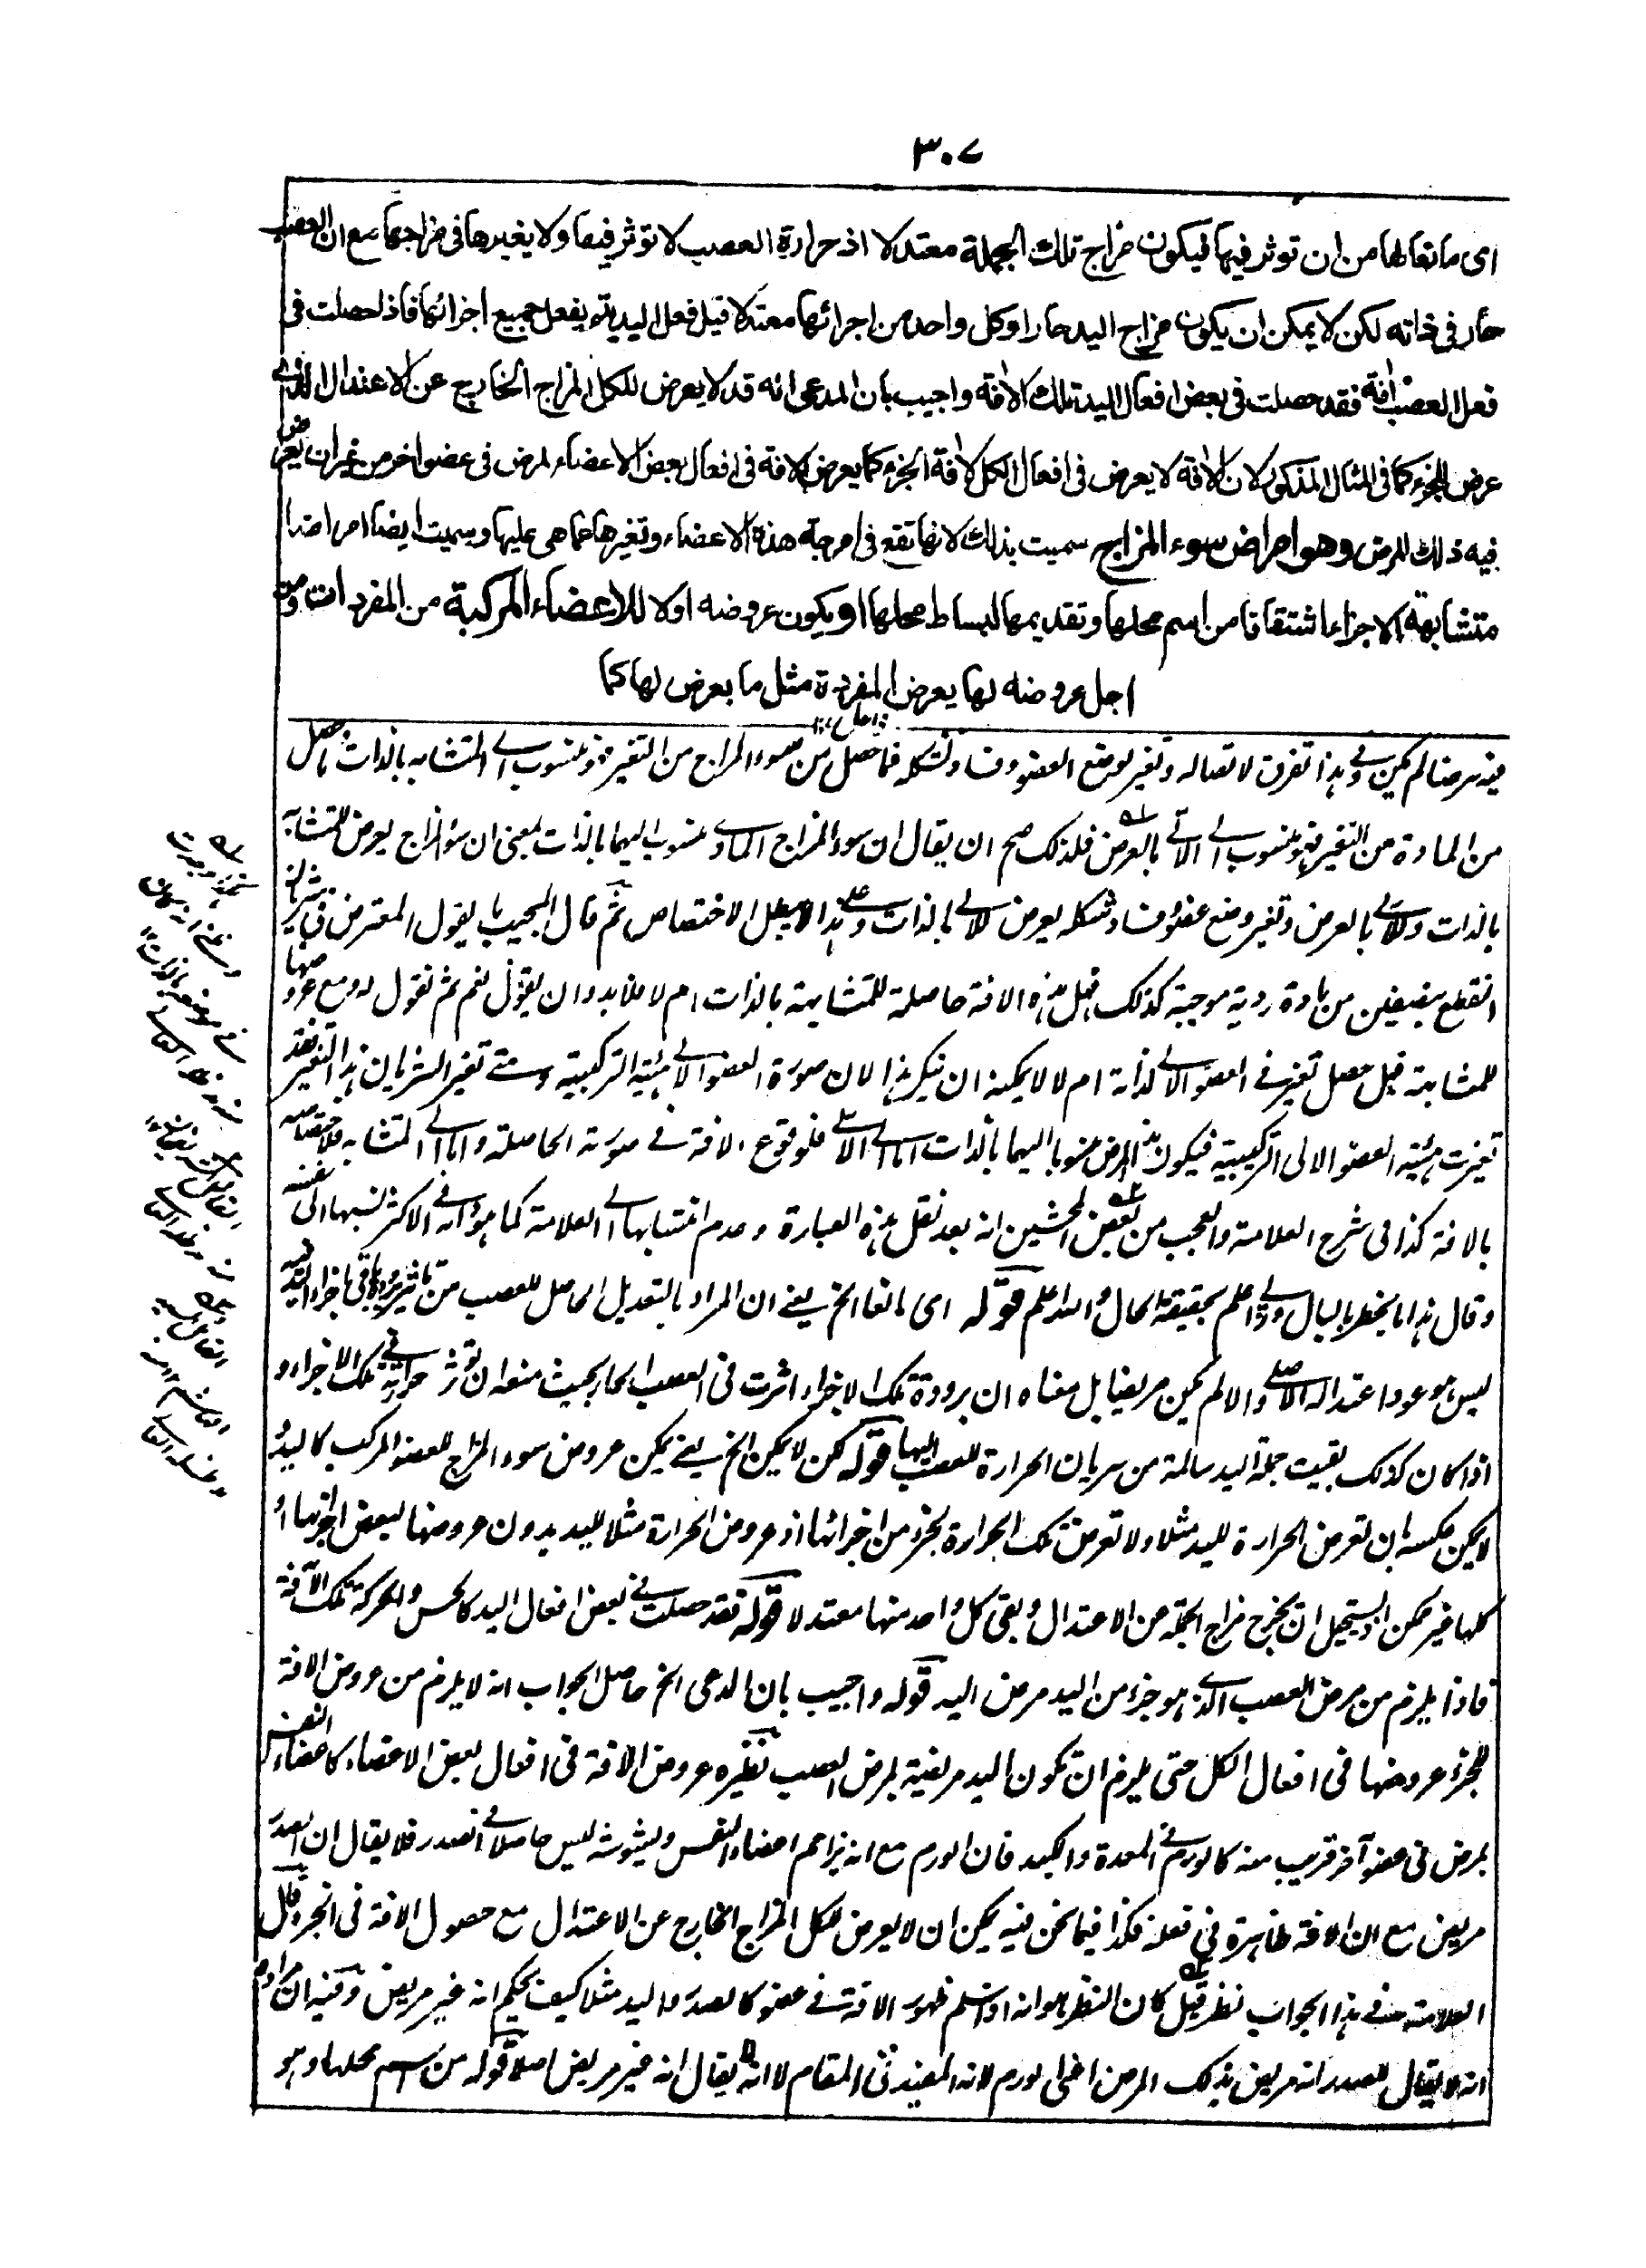 ٣٠٧
اى مانعا لها من ان توثر فيها فيكون مزاج تلك الجملة معتدلا اذ حرارة العصب لا توثر فيها ولا يغيرها فى مزاجها مع ان العصب
حار فى ذاته لكن لا يمكن ان يكون مزاج اليد حارا وكل واحد من اجزائها معتدلا قيل فعل اليد يتم بفعل جميع اجزائها فاذا حصلت فى
فعل العصب افة فقد حصلت فى بعض افعال اليد تلك الافة واجيب بان المدعى انه قد لا يعرض للكل المزاج الخارج عن الاعتدال الذى
عرض للجزء كما فى المثال المذكور لان الافة لا يعرض فى افعال الكل لافة الجزء كما يعرض الافة فى افعال بعض الاعضاء لمرض فى عضو اخر من غير ان يعرض
فيه ذلك المرض وهو امراض سوء المزاج سميت بذلك لانها تقع فى امزجة هذه الاعضاء وتغيرها عما هى عليها وسميت ايضا امراضا
متشابهة الاجزاء اشتقاقا من اسم محلها وتقديمها لبساط محلها او يكون عروضه اولا للاعضاء المركبة من المفردات ومن
اجل عروضه لها يعرض المفردة مثل ما يعرض لها كما
فيه مرضا لم يكن وفى هذا تفرق لاتصاله وتغير لوضع العضو وفساد لشكله فما حصل من سوء المزاج من التغير فهو منسوب الى المتشابه بالذات وما حصل
من المادة من التغير فهو منسوب الى الآلى بالعرض فلذلك صح ان يقال ان سوء المزاج المادى منسوب اليهما بالذات بمعنى ان سوء المزاج يعرض للمتشابه
بالذات وللآلى بالعرض وتغير وضع عضو وفساد شكله يعرض للآلى بالذات وعلى هذا لا يبطل الاختصاص ثم قال المجيب ما يقول المعترض فى شريان
انقطع بنصفين من مادة ردية موجبة لذلك فهل هذه الافة حاصلة للمتشابهة بالذات ام لا فلا بد وان يقول نعم ثم نقول له ومع عروضها
للمتشابهة هل حصل تغير فى العضو الآلى لذاته ام لا لا يمكنه ان ينكر هذا لان صورة العضو الآلى هيئته التركيبية ومتى تغير الشريان هذا التغير فقد
تغيرت هيئة العضو الالى التركيبية فيكون هذا المرض منسوبا اليهما بالذات اما الى الآلى فلوقوع الافة فى صورته الحاصلة واما الى المتشابه فلاختصاصه
بالافة كذا فى شرح العلامة والعجب من بعض المحشين انه بعد نقل هذه العبارة وعدم انتسابها الى العلامة كما هو دأبه فى الاكثر نسبها الى نفسه
وقال هذا ما يخطر بالبال وربى اعلم بحقيقة الحال والله اعلم قوله اى مانعا الخ يعنى ان المراد بالتعديل الحاصل للعصب من تاثير برودة باقى اجزاء اليد
ليس هو عود اعتداله الاصلى والا لم يكن مريضا بل معناه ان برودة تلك الاجزاء اثرت فى العصب الحار بحيث منعه ان توثر حرارته فى تلك الاجزاء و
اذا كان كذلك بقيت جملة اليد سالمة من سريان الحرارة للعصب اليها قوله لكن لا يمكن الخ يعنى يمكن عروض سوء المزاج للعضو المركب كاليد و
لا يمكن عكسه بان تعرض الحرارة لليد مثلا ولا تعرض تلك الحرارة لجزء من اجزائها اذ عروض الحرارة مثلا لليد بدون عروضها لبعض اجزائها او
كلها غير ممكن اذ يستحيل ان يخرج مزاج الجملة من الاعتدال وبقى كل واحد منها معتدلا قوله فقد حصلت فى بعض افعال اليد كالحس والحركة تلك الآفة
فاذا يلزم من مرض العصب الذى هو جزء من اليد مرض اليد قوله واجيب بان المدعى الخ حاصل الجواب انه لا يلزم من عروض الافة
للجزء عروضها فى افعال الكل حتى يلزم ان تكون اليد مريضة لمرض العصب نظيره عروض الافة فى افعال بعض الاعضاء كاعضاء النفس
لمرض فى عضو آخر قريب منه كالورم فى المعدة والكبد فان الورم مع انه يزاحم اعضاء النفس ويشوشه ليس حاصلا فى الصدر فلا يقال ان الصدر
مريض مع ان الافة ظاهرة فى فعله فكذا فيما نحن فيه يمكن ان لا يعرض للكل المزاج الخارج عن الاعتدال مع حصول الافة فى الجزء قال
العلامة وفى هذا الجواب نظر قيل كان النظر هو انه اذا سلم ظهور الافة فى عضو كالصدر واليد مثلا كيف يحكم انه غير مريض وفيه ان مرادهم
انه لا يقال للصدر انه مريض بذلك المرض اعنى الورم لانه المفيد فى المقام لا انه يقال انه غير مريض اصلا قوله من اسم محلها وهو